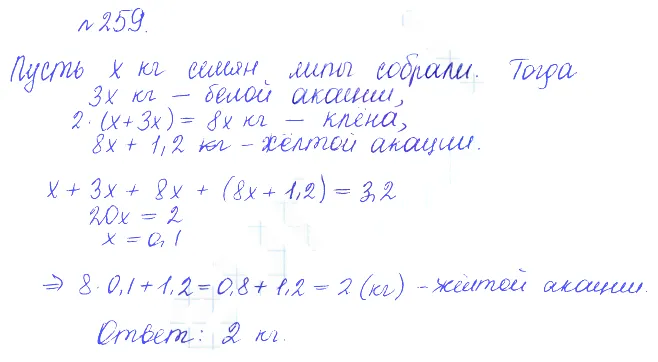 №259.
Пусть x кг семян липы собрали. Тогда
3x кг – белой акации,
2·(x+3x) = 8x кг – клёна,
8x + 1,2 кг – жёлтой акации.
x + 3x + 8x + (8x + 1,2) = 3,2
20x = 2
x = 0,1
⇒ 8·0,1+1,2 = 0,8+1,2 = 2 (кг) – жёлтой акации.
Ответ: 2 кг.